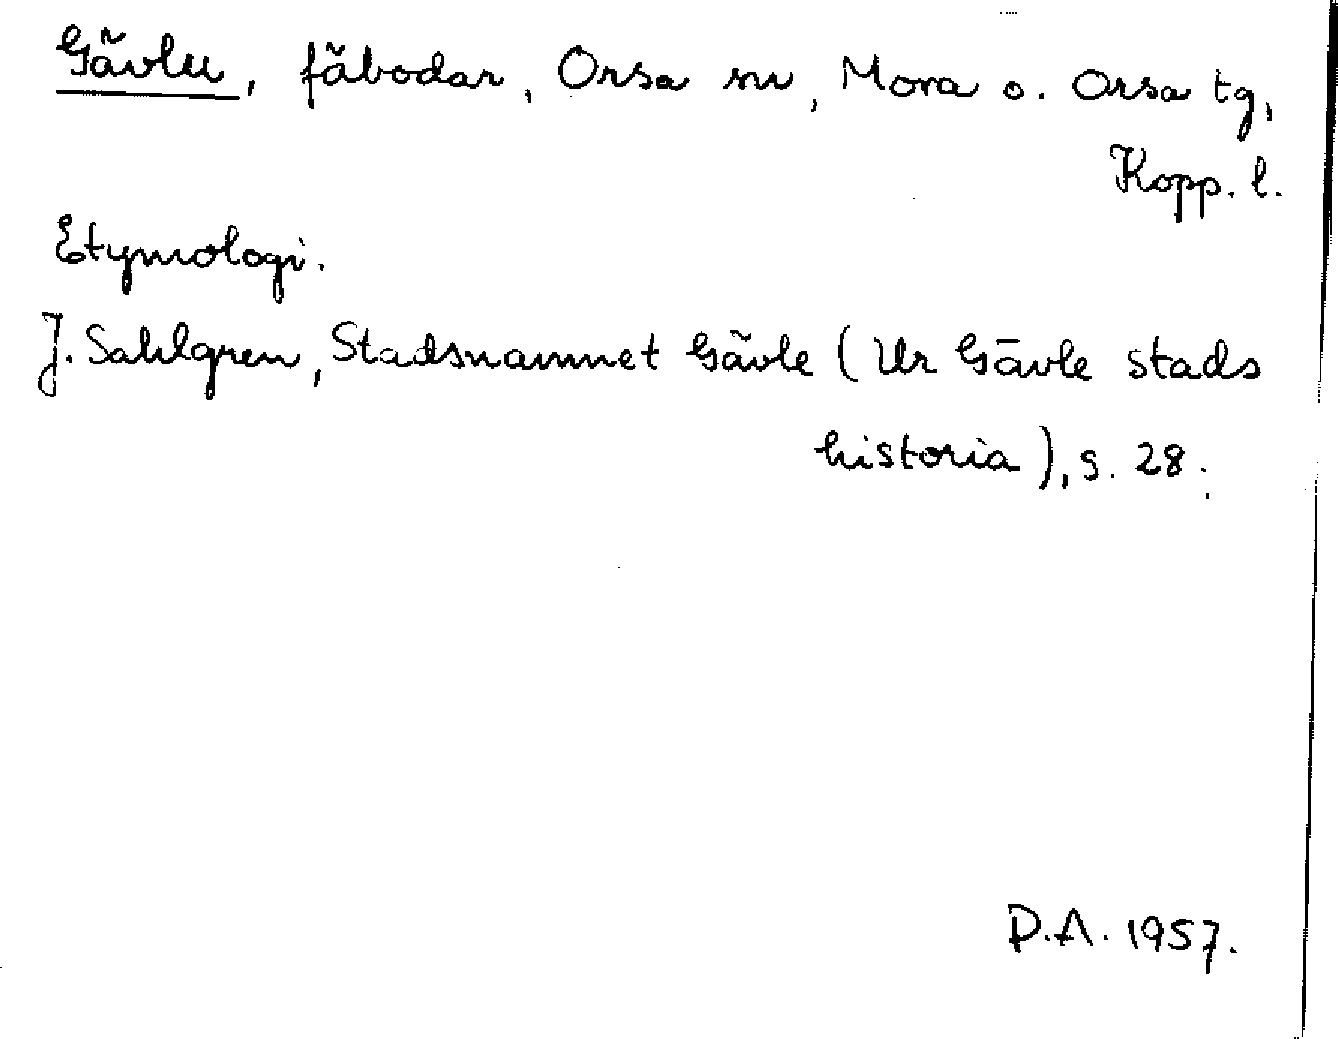 Gävlu, fäbodar, Orsa sn, Mora o. Orsa tg,
Kopp. l.
Etymologi.
J. Sahlgren, Stadsnamnet Gävle (Ur Gävle stads
historia), s. 28.
D.A. 1957.